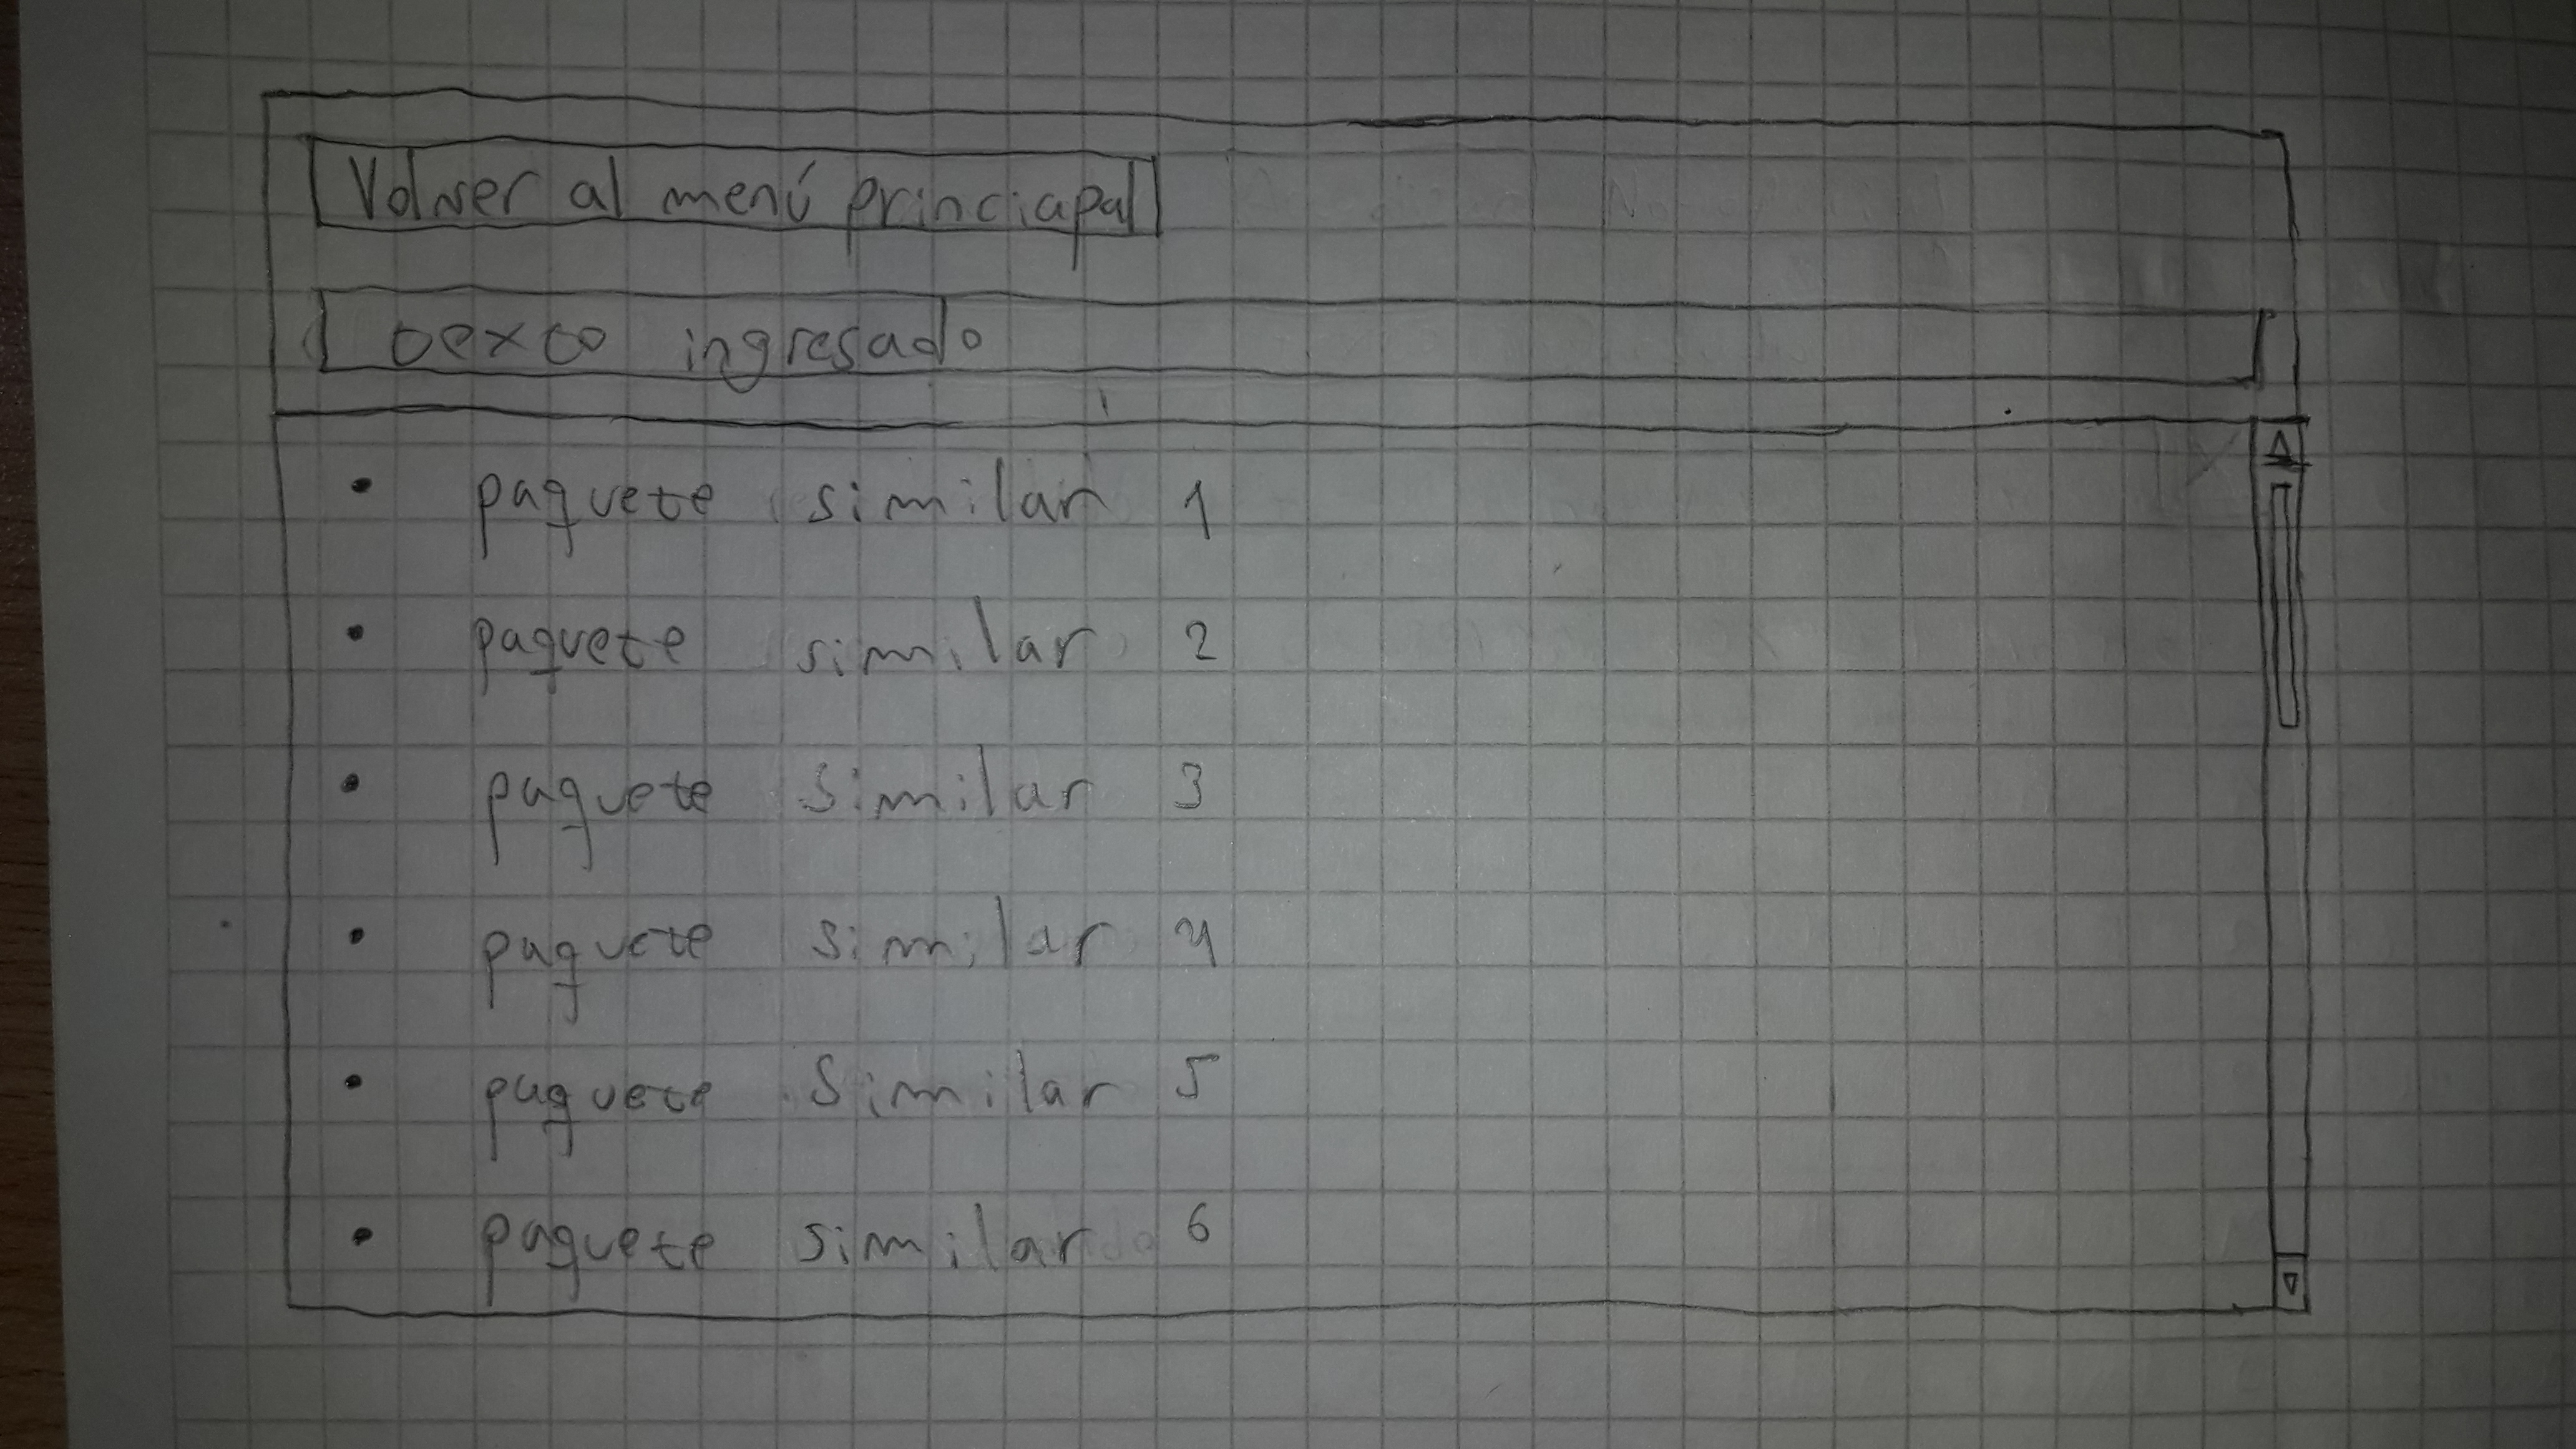 Volver al menú princiapal
texto ingresado
• paquete similar 1
• paquete similar 2
• paquete similar 3
• paquete similar 4
• paquete similar 5
• paquete similar 6